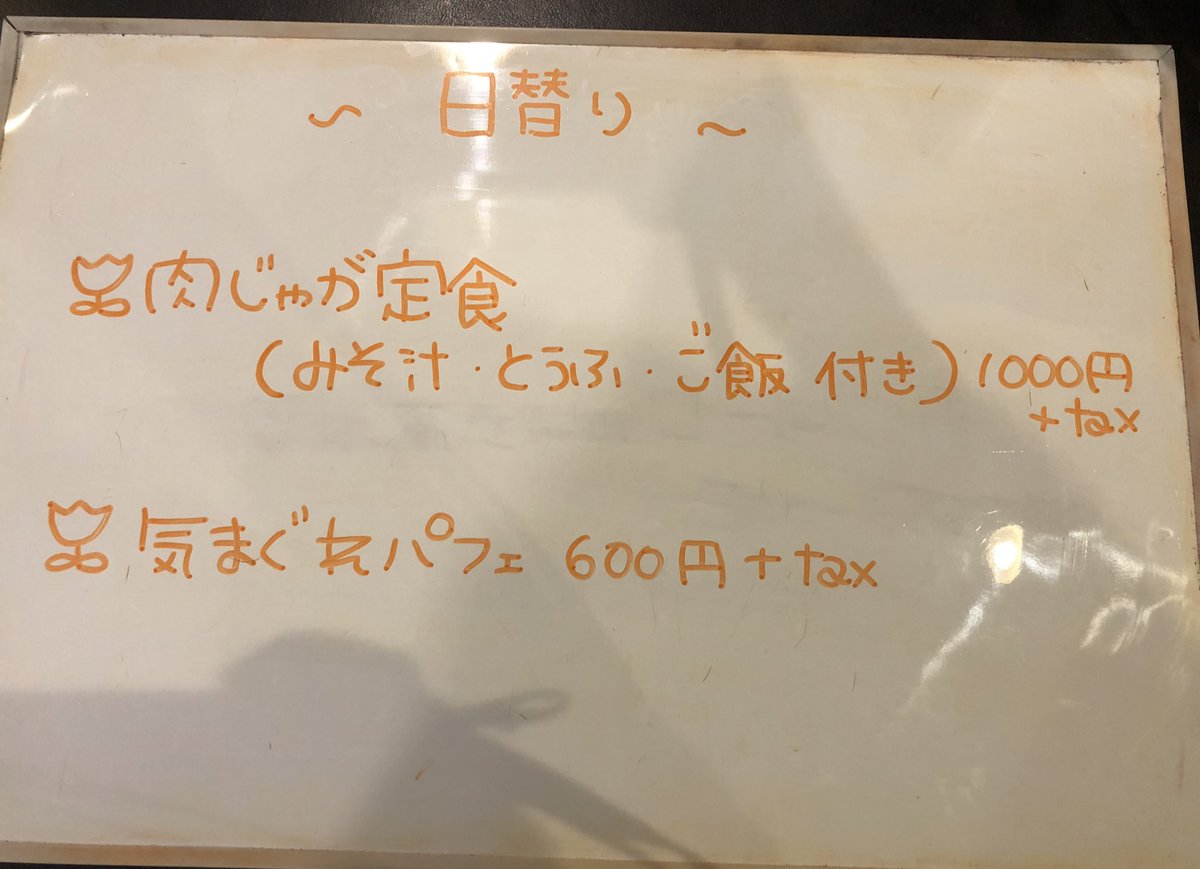 ～ 日替り ～
肉じゃが定食
(みそ汁・とうふ・ご飯 付き) 1000円
+tax
気まぐれパフェ 600円+tax